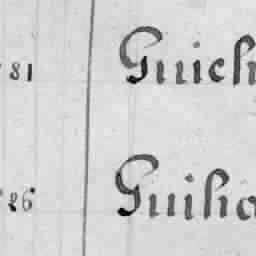 81 Guich
26 Guiha